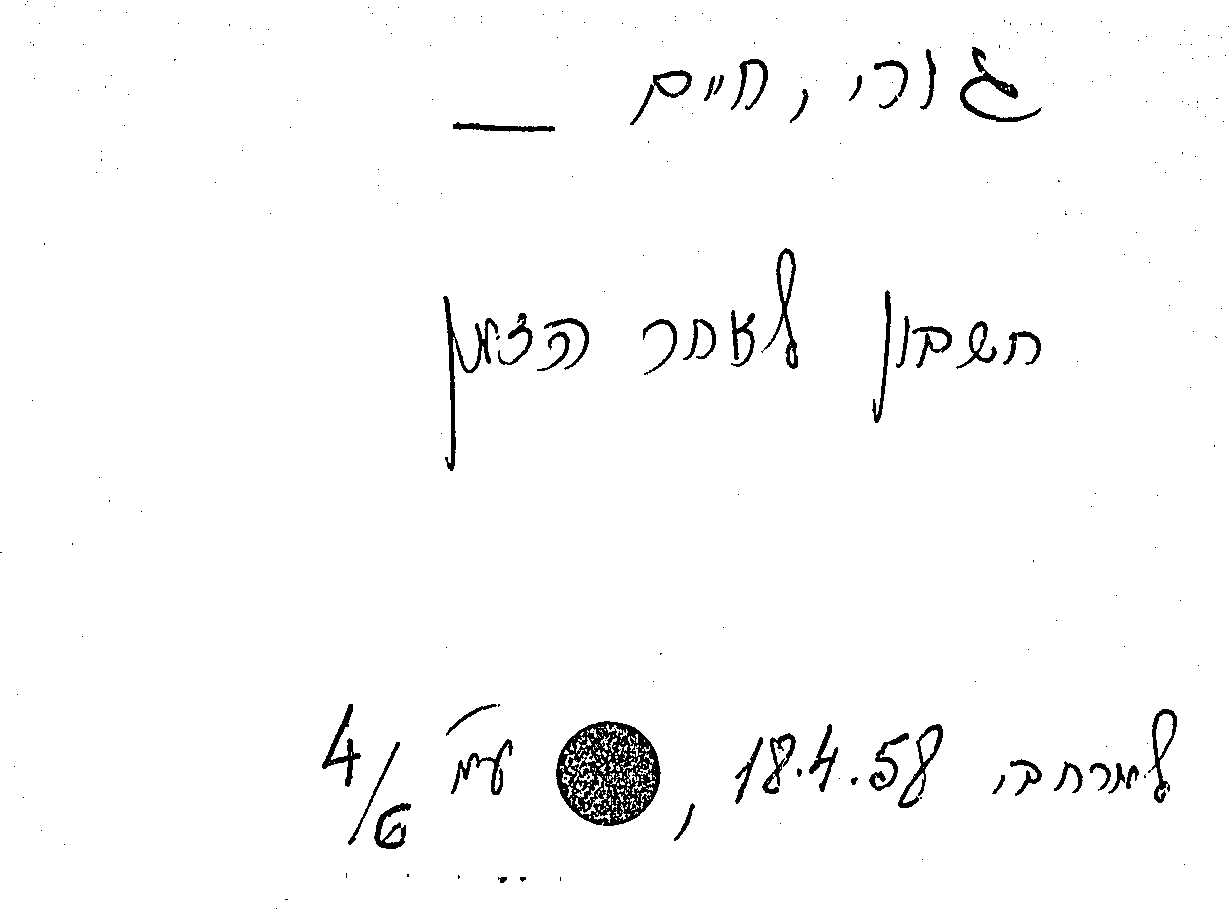 גורי, חיים —
חשבון לאחר הזמן
למרחב, 18.4.58, עמ' 4/6